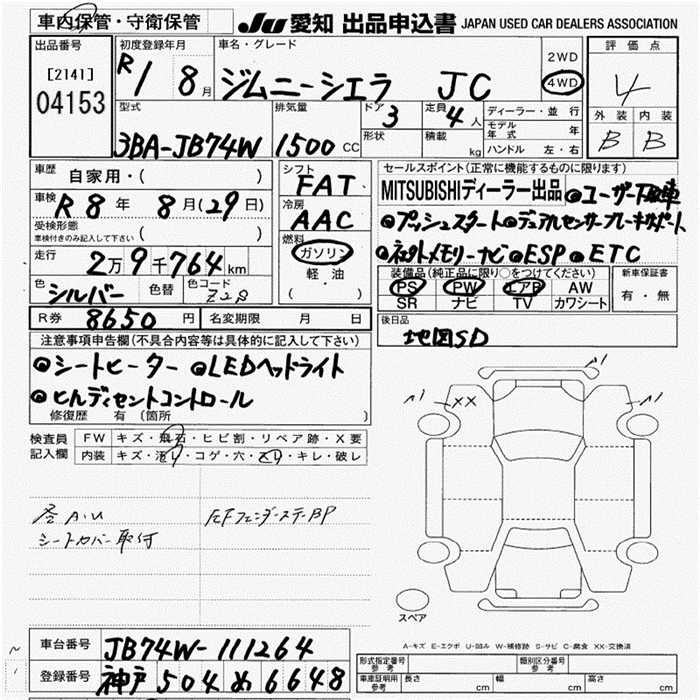 車内保管・守衛保管 JU 愛知 出品申込書 JAPAN USED CAR DEALERS ASSOCIATION
出品番号 初度登録年月 車名・グレード 2WD 評価点
[2141] R1 8月 ジムニーシエラ JC 4WD 4
04153
型式 排気量 ドア 3 定員 4人 ディーラー・並行 外装 内装
3BA-JB74W 1500CC 形状 積載 kg モデル年式 B B
ハンドル 左・右
車歴 自家用・( ) シフト FAT セールスポイント(正常に機能するものに限ります)
車検 R8年 8月(29日) 冷房 AAC MITSUBISHIディーラー出品 ◎ユーザー下取車
受検形態 ◎プッシュスタート◎デュアルセンサーブレーキサポート
車検付きのみ記入して下さい ( ) 燃料 ガソリン ◎ネットメモリーナビ◎ESP◎ETC
走行 2万9千764km 軽油 装備品(純正品に限り○をつけてください) 新車保証書
色 シルバー 色替 色コード Z2S ( ) PS PW エアB AW 有・無
SR ナビ TV カワシート
R券 8650円 名変期限 月 日 後日品
地図SD
注意事項申告欄(不具合内容等は具体的に記入して下さい)
◎シートヒーター ◎LEDヘッドライト
◎ヒルディセントコントロール
修復歴 有 (箇所 )
検査員 FW キズ・飛石・ヒビ割・リペア跡・X要
記入欄 内装 キズ・汚れ・コゲ・穴・スレ・キレ・破レ
A1 XX A1 A1
各A.U
シートカバー取付
スペア
A-キズ E-エクボ U-凹み W-補修跡 S-サビ C-腐食 XX-交換済
車台番号 JB74W-111264
登録番号 神戸 504 め 6648
形式指定番号 参考 類別区分番号 参考
車庫証明用 参考 長さ cm 幅 cm 高さ cm